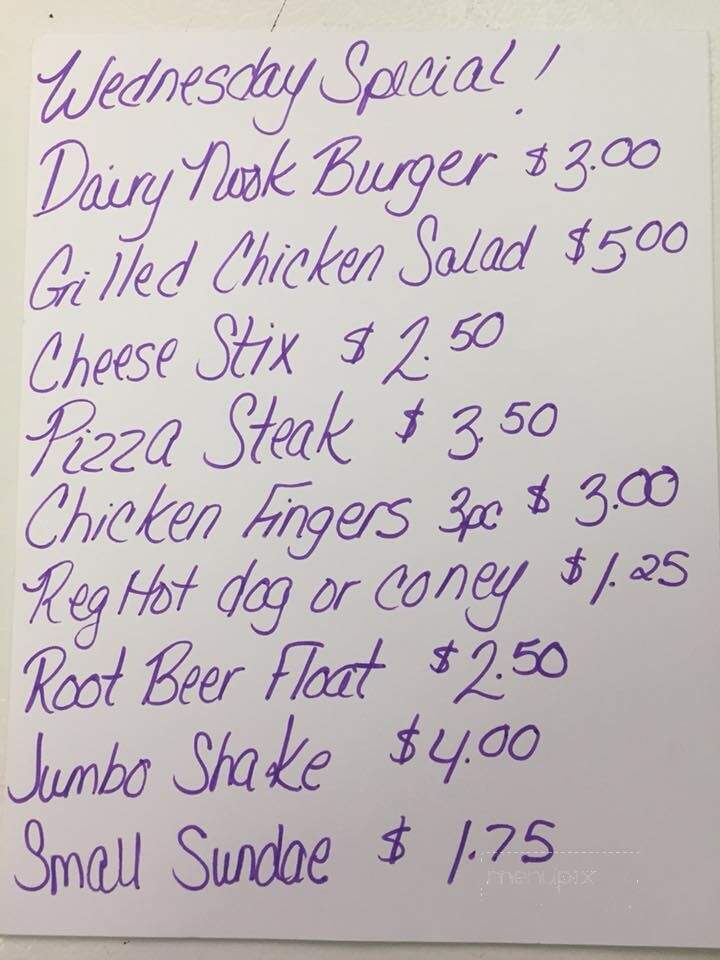 Wednesday Special!
Dairy Nook Burger $3.00
Grilled Chicken Salad $5.00
Cheese Stix $2.50
Pizza Steak $3.50
Chicken Fingers 3pc $3.00
Reg Hot dog or coney $1.25
Root Beer Float $2.50
Jumbo Shake $4.00
Small Sundae $1.75
menupix